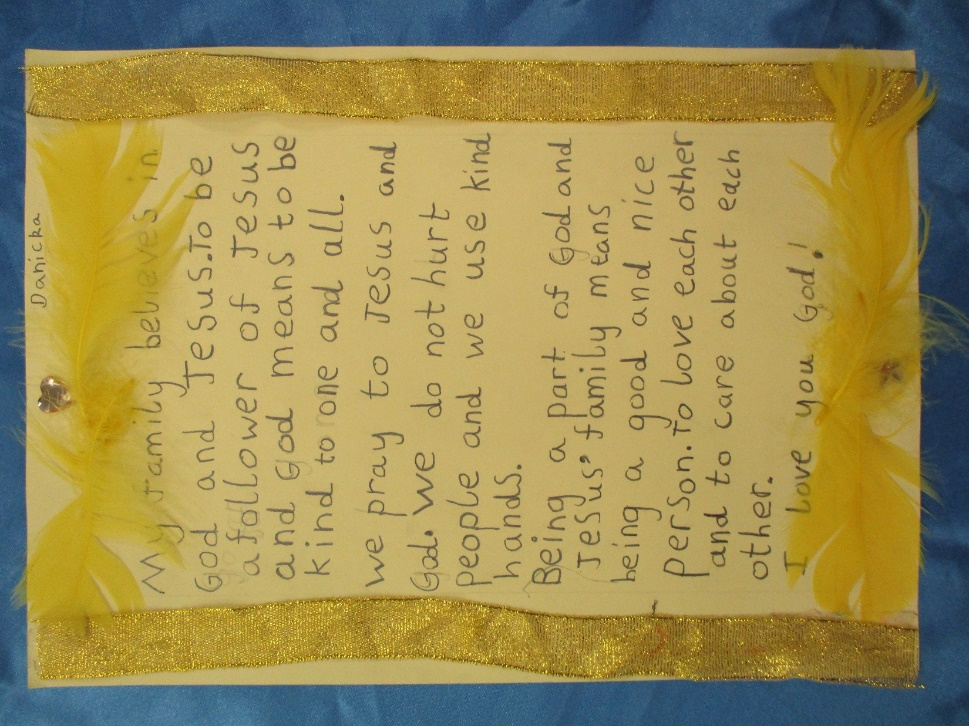 Danicka
My family believes in
God and Jesus.To be
a follower of Jesus
and God means to be
kind to one and all.
we pray to Jesus and
God. We do not hurt
people and we use kind
hands.
Being a part of God and
Jesus' family means
being a good and nice
person.To love each other
and to care about each
other.
I love you God!